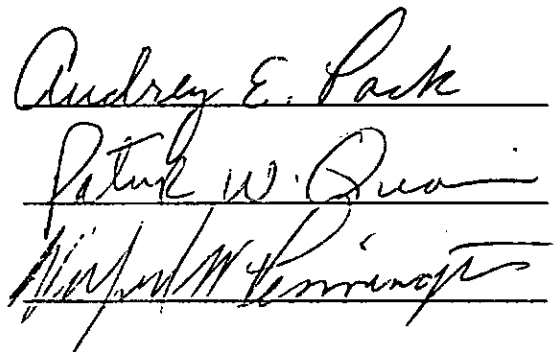 Audrey E. Pack
Patrick W. Quinn
W. Pennington